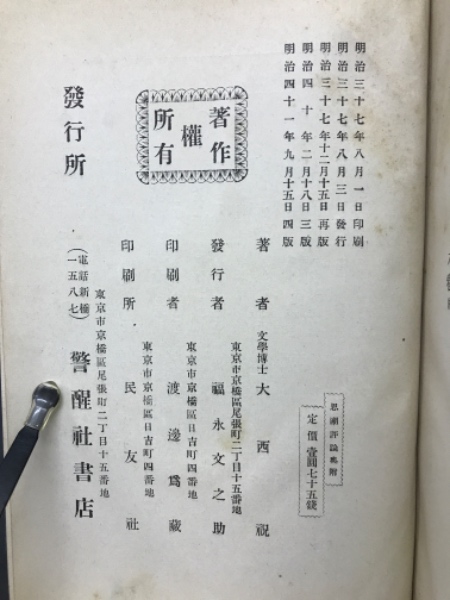 明治三十七年八月一日印刷
明治三十七年八月三日發行
明治三十七年十二月十五日再版
明治四十年二月十八日三版
明治四十一年九月十五日四版
定價壹圓七十五錢
著作
權
所有
著者 文學博士 大西祝
東京市京橋區尾張町二丁目十五番地
發行者 福永文之助
東京市京橋區日吉町四番地
印刷者 渡邊爲藏
東京市京橋區日吉町四番地
印刷所 民友社
發行所
東京市京橋區尾張町二丁目十五番地
(電話新橋一五八七)
警醒社書店